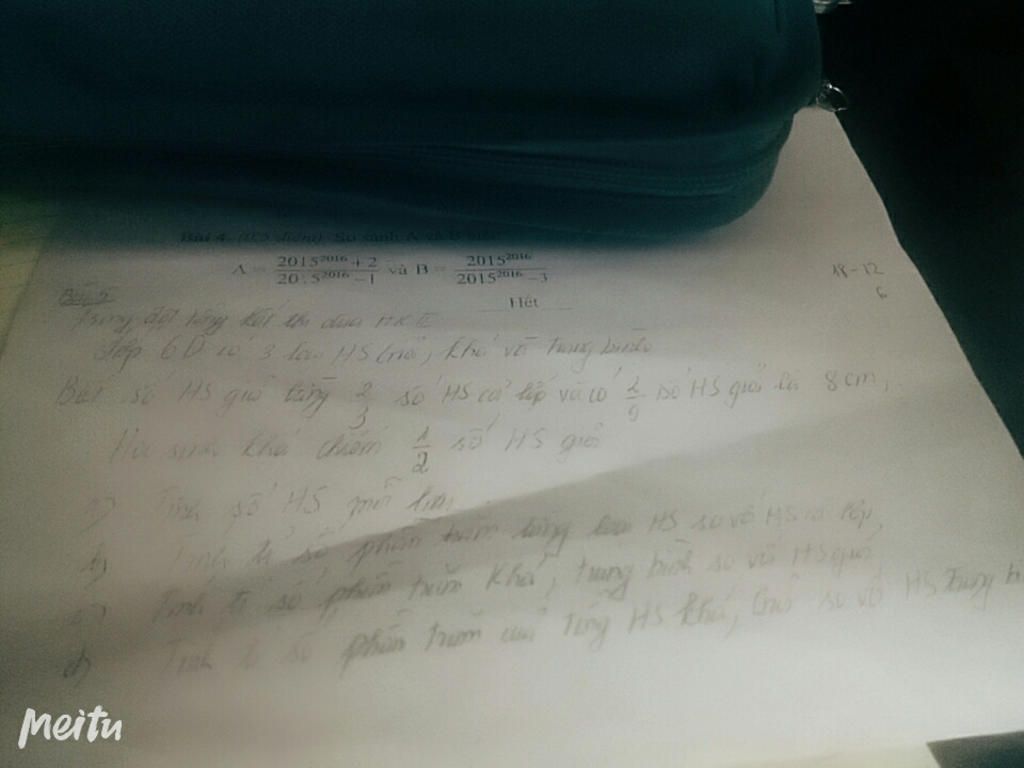 Bài 4. (0,5 điểm) So sánh A và B
A = \frac{2015^{2016}+2}{2015^{2016}-1} và B = \frac{2015^{2016}}{2015^{2016}-3}
18-12
6
Hết
Bài 5
Trong đợt tổng kết thi đua HK II
lớp 6D có 3 loại HS Giỏi, khá và trung bình
Biết số HS giỏi bằng \frac{2}{3} số HS cả lớp và có \frac{2}{9} số HS giỏi là 8 em,
Học sinh khá chiếm \frac{1}{2} số HS giỏi
a) Tính số HS mỗi loại
b) Tính tỉ số phần trăm từng loại HS so với HS cả lớp,
c) Tính tỉ số phần trăm khá, trung bình so với HS giỏi,
d) Tính tỉ số phần trăm của tổng HS khá, Giỏi so với HS Trung bì
Meitu